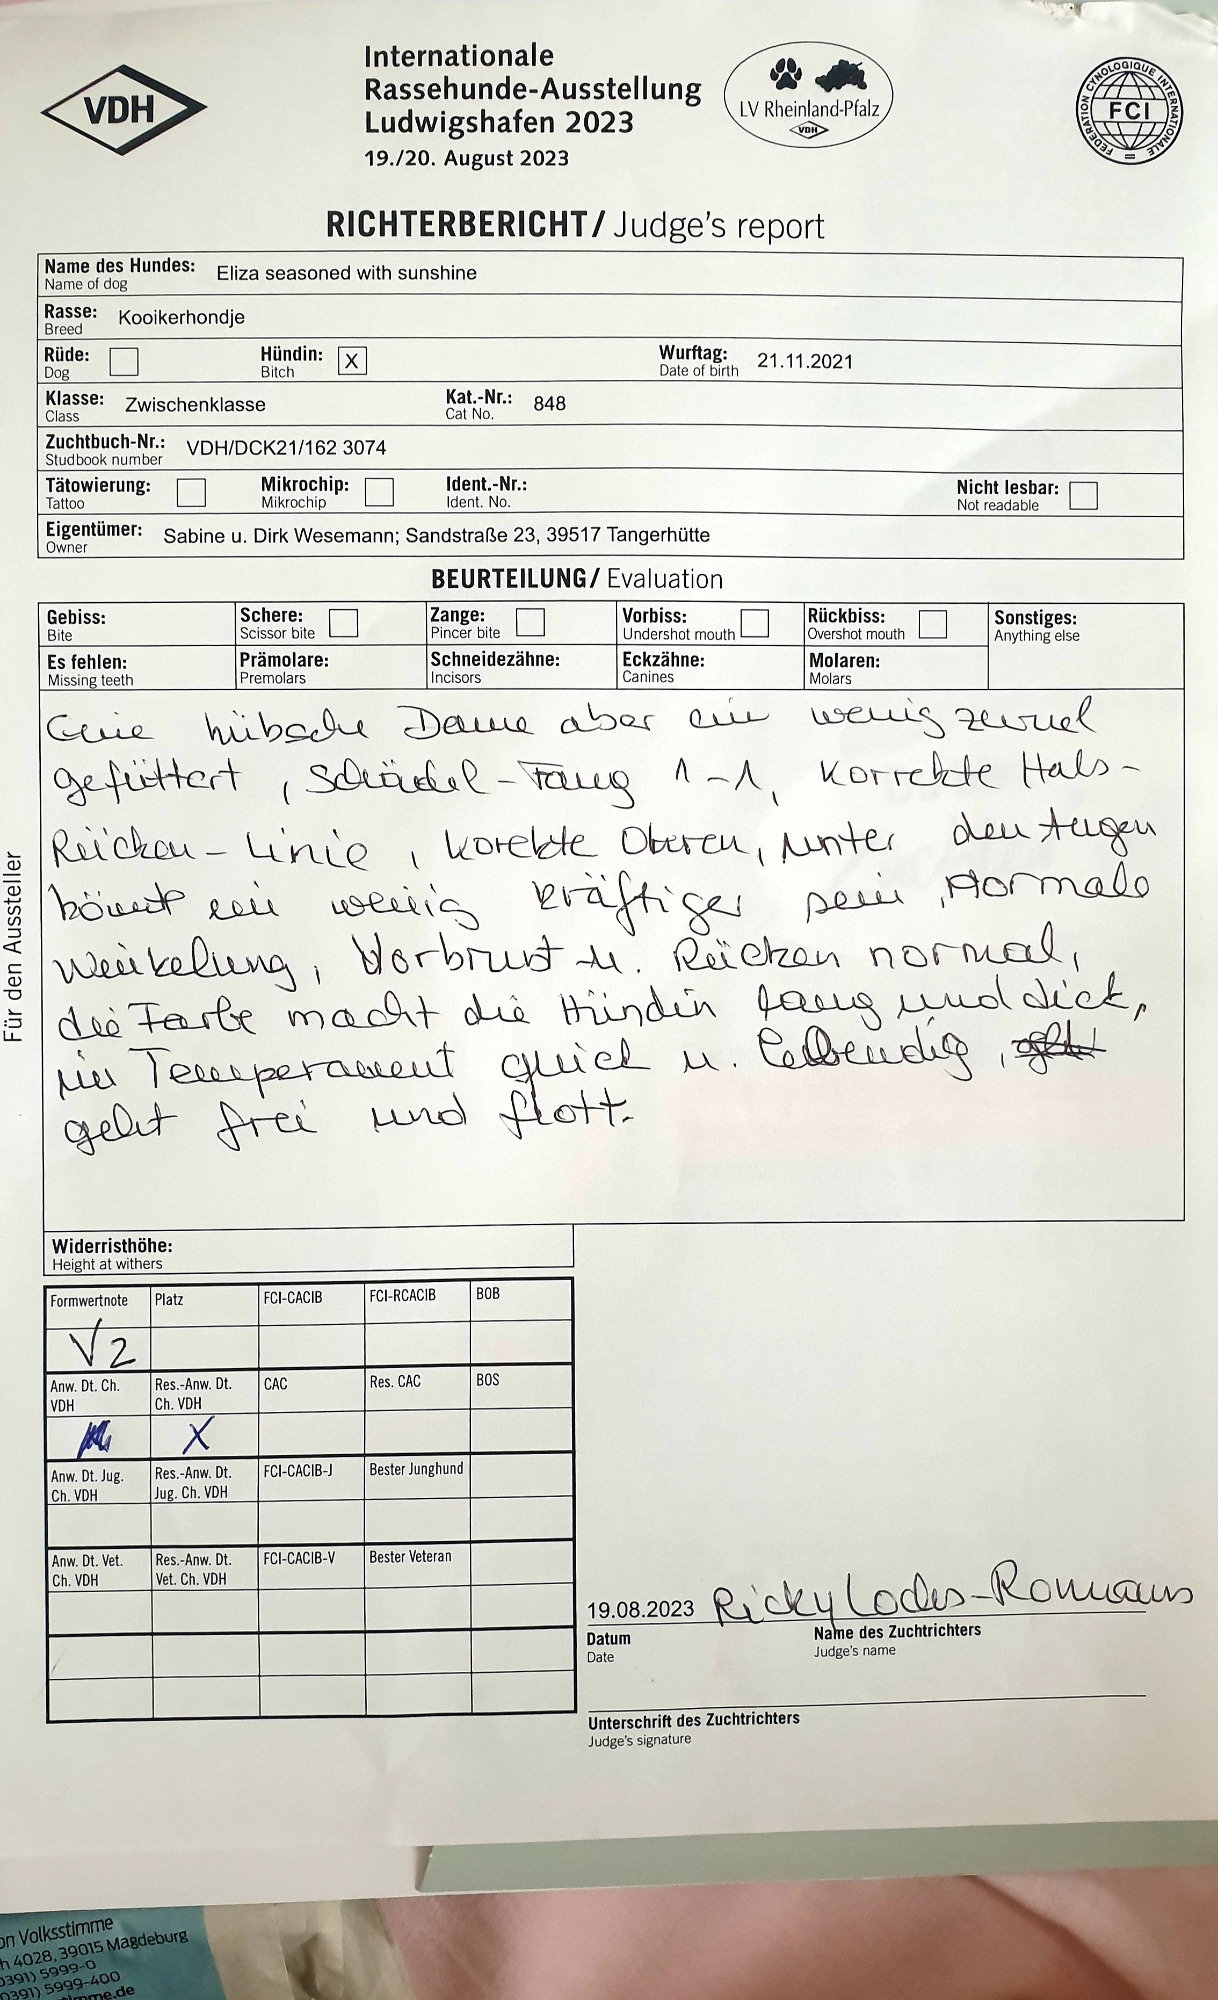 VDH
Internationale
Rassehunde-Ausstellung
Ludwigshafen 2023
19./20. August 2023
LV Rheinland-Pfalz
VDH
FEDERATION CYNOLOGIQUE INTERNATIONALE
FCI
RICHTERBERICHT / Judge's report
Name des Hundes: Eliza seasoned with sunshine
Name of dog
Rasse: Kooikerhondje
Breed
Rüde: Hündin: X Wurftag: 21.11.2021
Dog Bitch Date of birth
Klasse: Zwischenklasse Kat.-Nr.: 848
Class Cat No.
Zuchtbuch-Nr.: VDH/DCK21/162 3074
Studbook number
Tätowierung: Mikrochip: Ident.-Nr.: Nicht lesbar:
Tattoo Mikrochip Ident. No. Not readable
Eigentümer: Sabine u. Dirk Wesemann; Sandstraße 23, 39517 Tangerhütte
Owner
BEURTEILUNG / Evaluation
Gebiss: Schere: Zange: Vorbiss: Rückbiss: Sonstiges:
Bite Scissor bite Pincer bite Undershot mouth Overshot mouth Anything else
Es fehlen: Prämolare: Schneidezähne: Eckzähne: Molaren:
Missing teeth Premolars Incisors Canines Molars
Eine hübsche Dame aber ein wenig zuviel
gefüttert, Schädel-Fang 1-1, korrekte Hals-
Rücken-Linie, korekte Ohren, unter den Augen
könnt ein wenig kräftiger sein, Normale
Winkelung, Vorbrust u. Rücken normal,
die Farbe macht die Hündin lang und dick,
im Temperament quick u. lebendig,
geht frei und flott.
Für den Aussteller
Widerristhöhe:
Height at withers
Formwertnote Platz FCI-CACIB FCI-RCACIB BOB
V2
Anw. Dt. Ch. Res.-Anw. Dt. CAC Res. CAC BOS
VDH Ch. VDH
X
Anw. Dt. Jug. Res.-Anw. Dt. FCI-CACIB-J Bester Junghund
Ch. VDH Jug. Ch. VDH
Anw. Dt. Vet. Res.-Anw. Dt. FCI-CACIB-V Bester Veteran
Ch. VDH Vet. Ch. VDH
19.08.2023 Ricky Lochs-Romans
Datum Name des Zuchtrichters
Date Judge's name
Unterschrift des Zuchtrichters
Judge's signature
on Volksstimme
h 4028, 39015 Magdeburg
0391) 5999-0
0391) 5999-400
mme.de